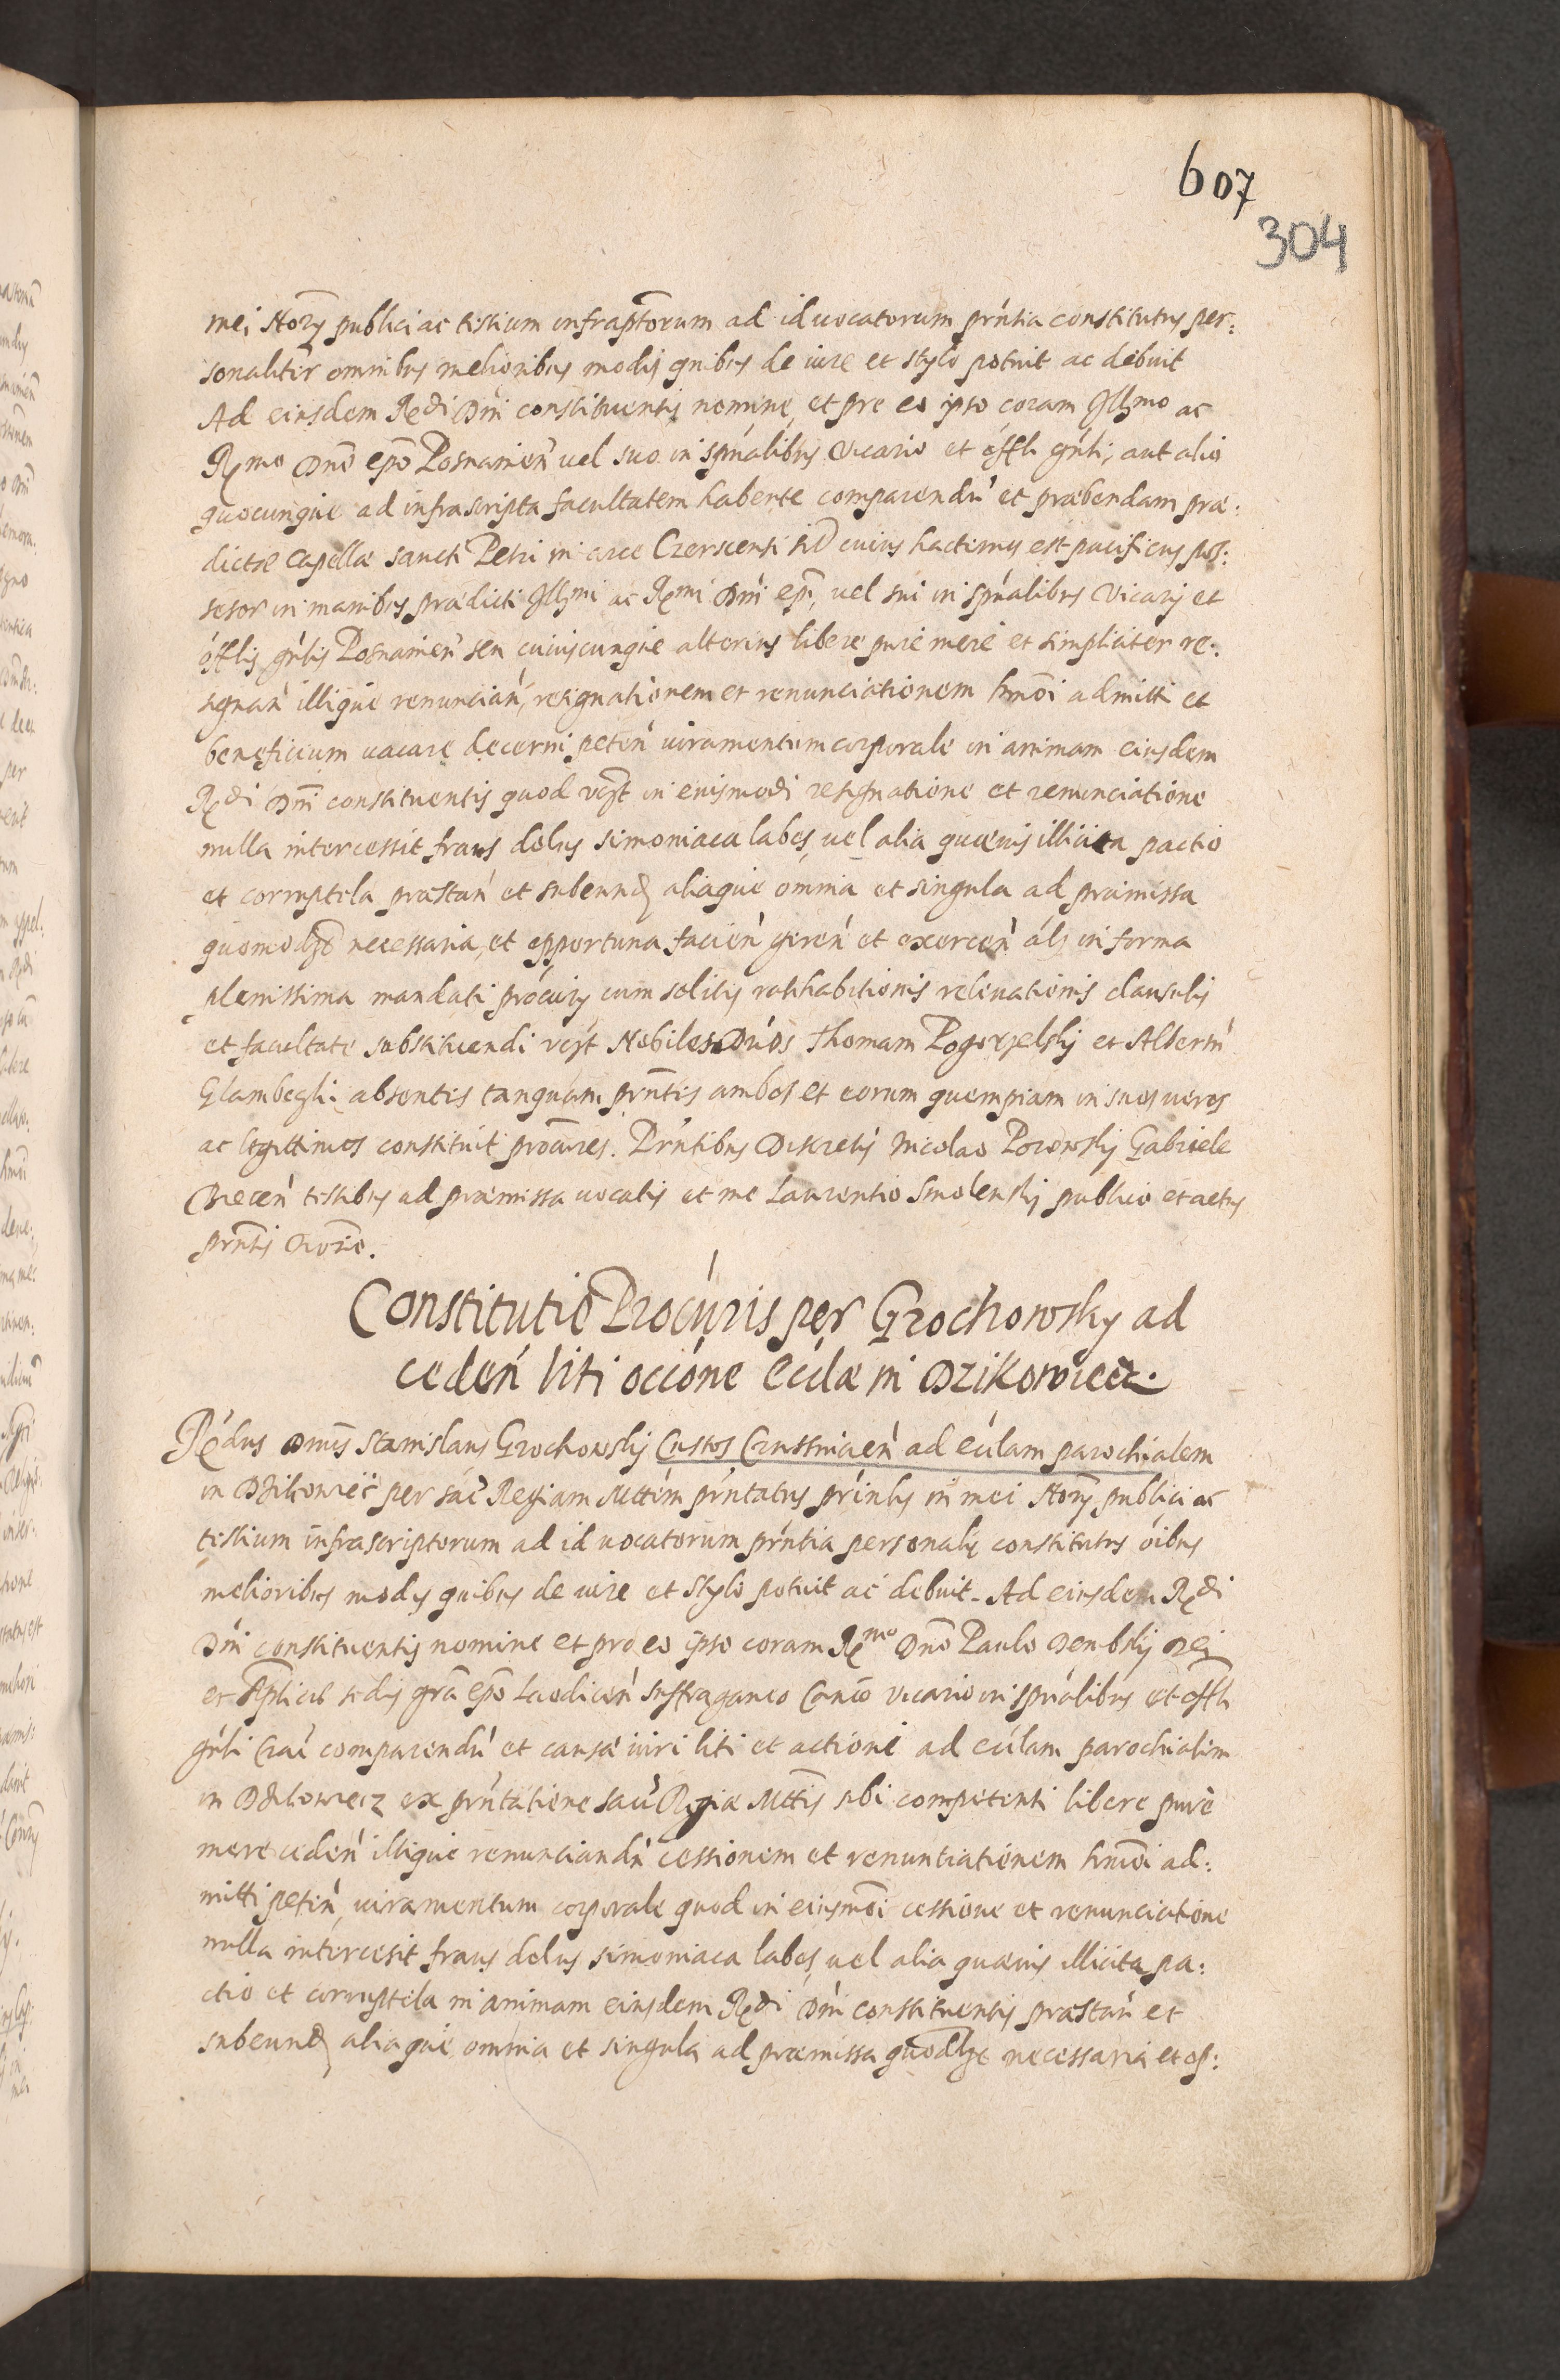 607
304
mei Norȳ publici ac testium infrap̄torum ad id uocatorum prńtia constitutus per:
sonaliter omnibus melioribus modis quibus de iure et stylo potuit ac debuit
Ad eiusdem Rẹdi Dni constituentis nomine, et pro eo ipso coram Illmo ac
Rẹmo Dno epo Posnanien uel suo in spńalibus Vicario et offli gńli, aut alio
quocunque ad infrascripta facultatem habente comparendu et præbendam præ:
dictæ Capellæ sancti Petri in arce Czerscensi cuius hactenus est pacificus pos:
sesor in manibus prædicti Illmi ac Rẹmi Dni epi, uel sui in spńalibus Vicarij et
offlis gńlis Posnanien seu cuiuscunque alterius libere pure mere et simpliciter re:
signan illique renuncian, resignationem et renunciationem hmoi admitti et
beneficium uacare decerni peten iuramentum corporale in animam eiusdem
Rẹdi Dni constituentis quod in eiusmodi resignatione et renunciatione
nulla intercessit fraus dolus simoniaca labes, uel alia quæuis illicita pactio
et corruptela præstan et subeund aliaque omnia et singula ad præmissa
necessaria, et opportuna facien geren et exercen als in forma
plenissima mandati procuris cum solitis ratihabitionis releuationis clausulis
et facultate substituendi Nobiles Dnos Thomam Pogorzelskij et Albertu
Glambeczki absentis tanquam prńtis ambos et eorum quempiam in suos ueros
ac legittimos constituit procures. Prńtibus Discretis Nicolao Porowskij Gabriele
testibus ad præmissa uocatis et me Laurentio Smolenskij publico et actus
prńtis Notrio.
Constitutio Procuris per Grochowsky ad
ceden liti occione Eclæ in Dzikowiecz.
Rẹdus Dnus Stanislaus Grochowskij Custos Crusuicien ad Eclam parochialem
in Dzikowiec per sac Regiam Mttem prntatus prinlis in mei Norȳ publici ac
testium infrascriptorum ad id uocatorum prntia personalr constitutus oibus
melioribus modis quibus de iure et stylo potuit ac debuit. Ad eiusdem Rẹdi
Dni constituentis nomine et pro eo ipso coram Rẹmo Dno Paulo Dembskij Dei
et Aplicæ sedis gra epo Laodicen suffraganeo Canco Vicario in spńalibus et offli
gńli Crac comparendu et causæ iuri liti et actioni ad eclam parochialem
in Dzikowiecz ex prntatione sac Regiæ Mttis sibi competenti libere pure
mere ceden illique renunciandu cessionem et renuntiationem hmoi ad:
mitti peten, iuramentum corporale quod in eiusmoi cessione et renunciatione
nulla intercesit fraus dolus simoniaca labes, uel alia quæuis illicita pa:
ctio et corruptela in animam eiusdem Rẹdi Dni constituentis præstan et
subeund aliaque omnia et singula ad præmissa quodlzt necessaria et op: